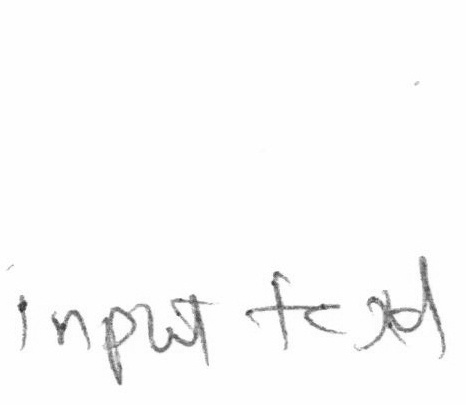 input text